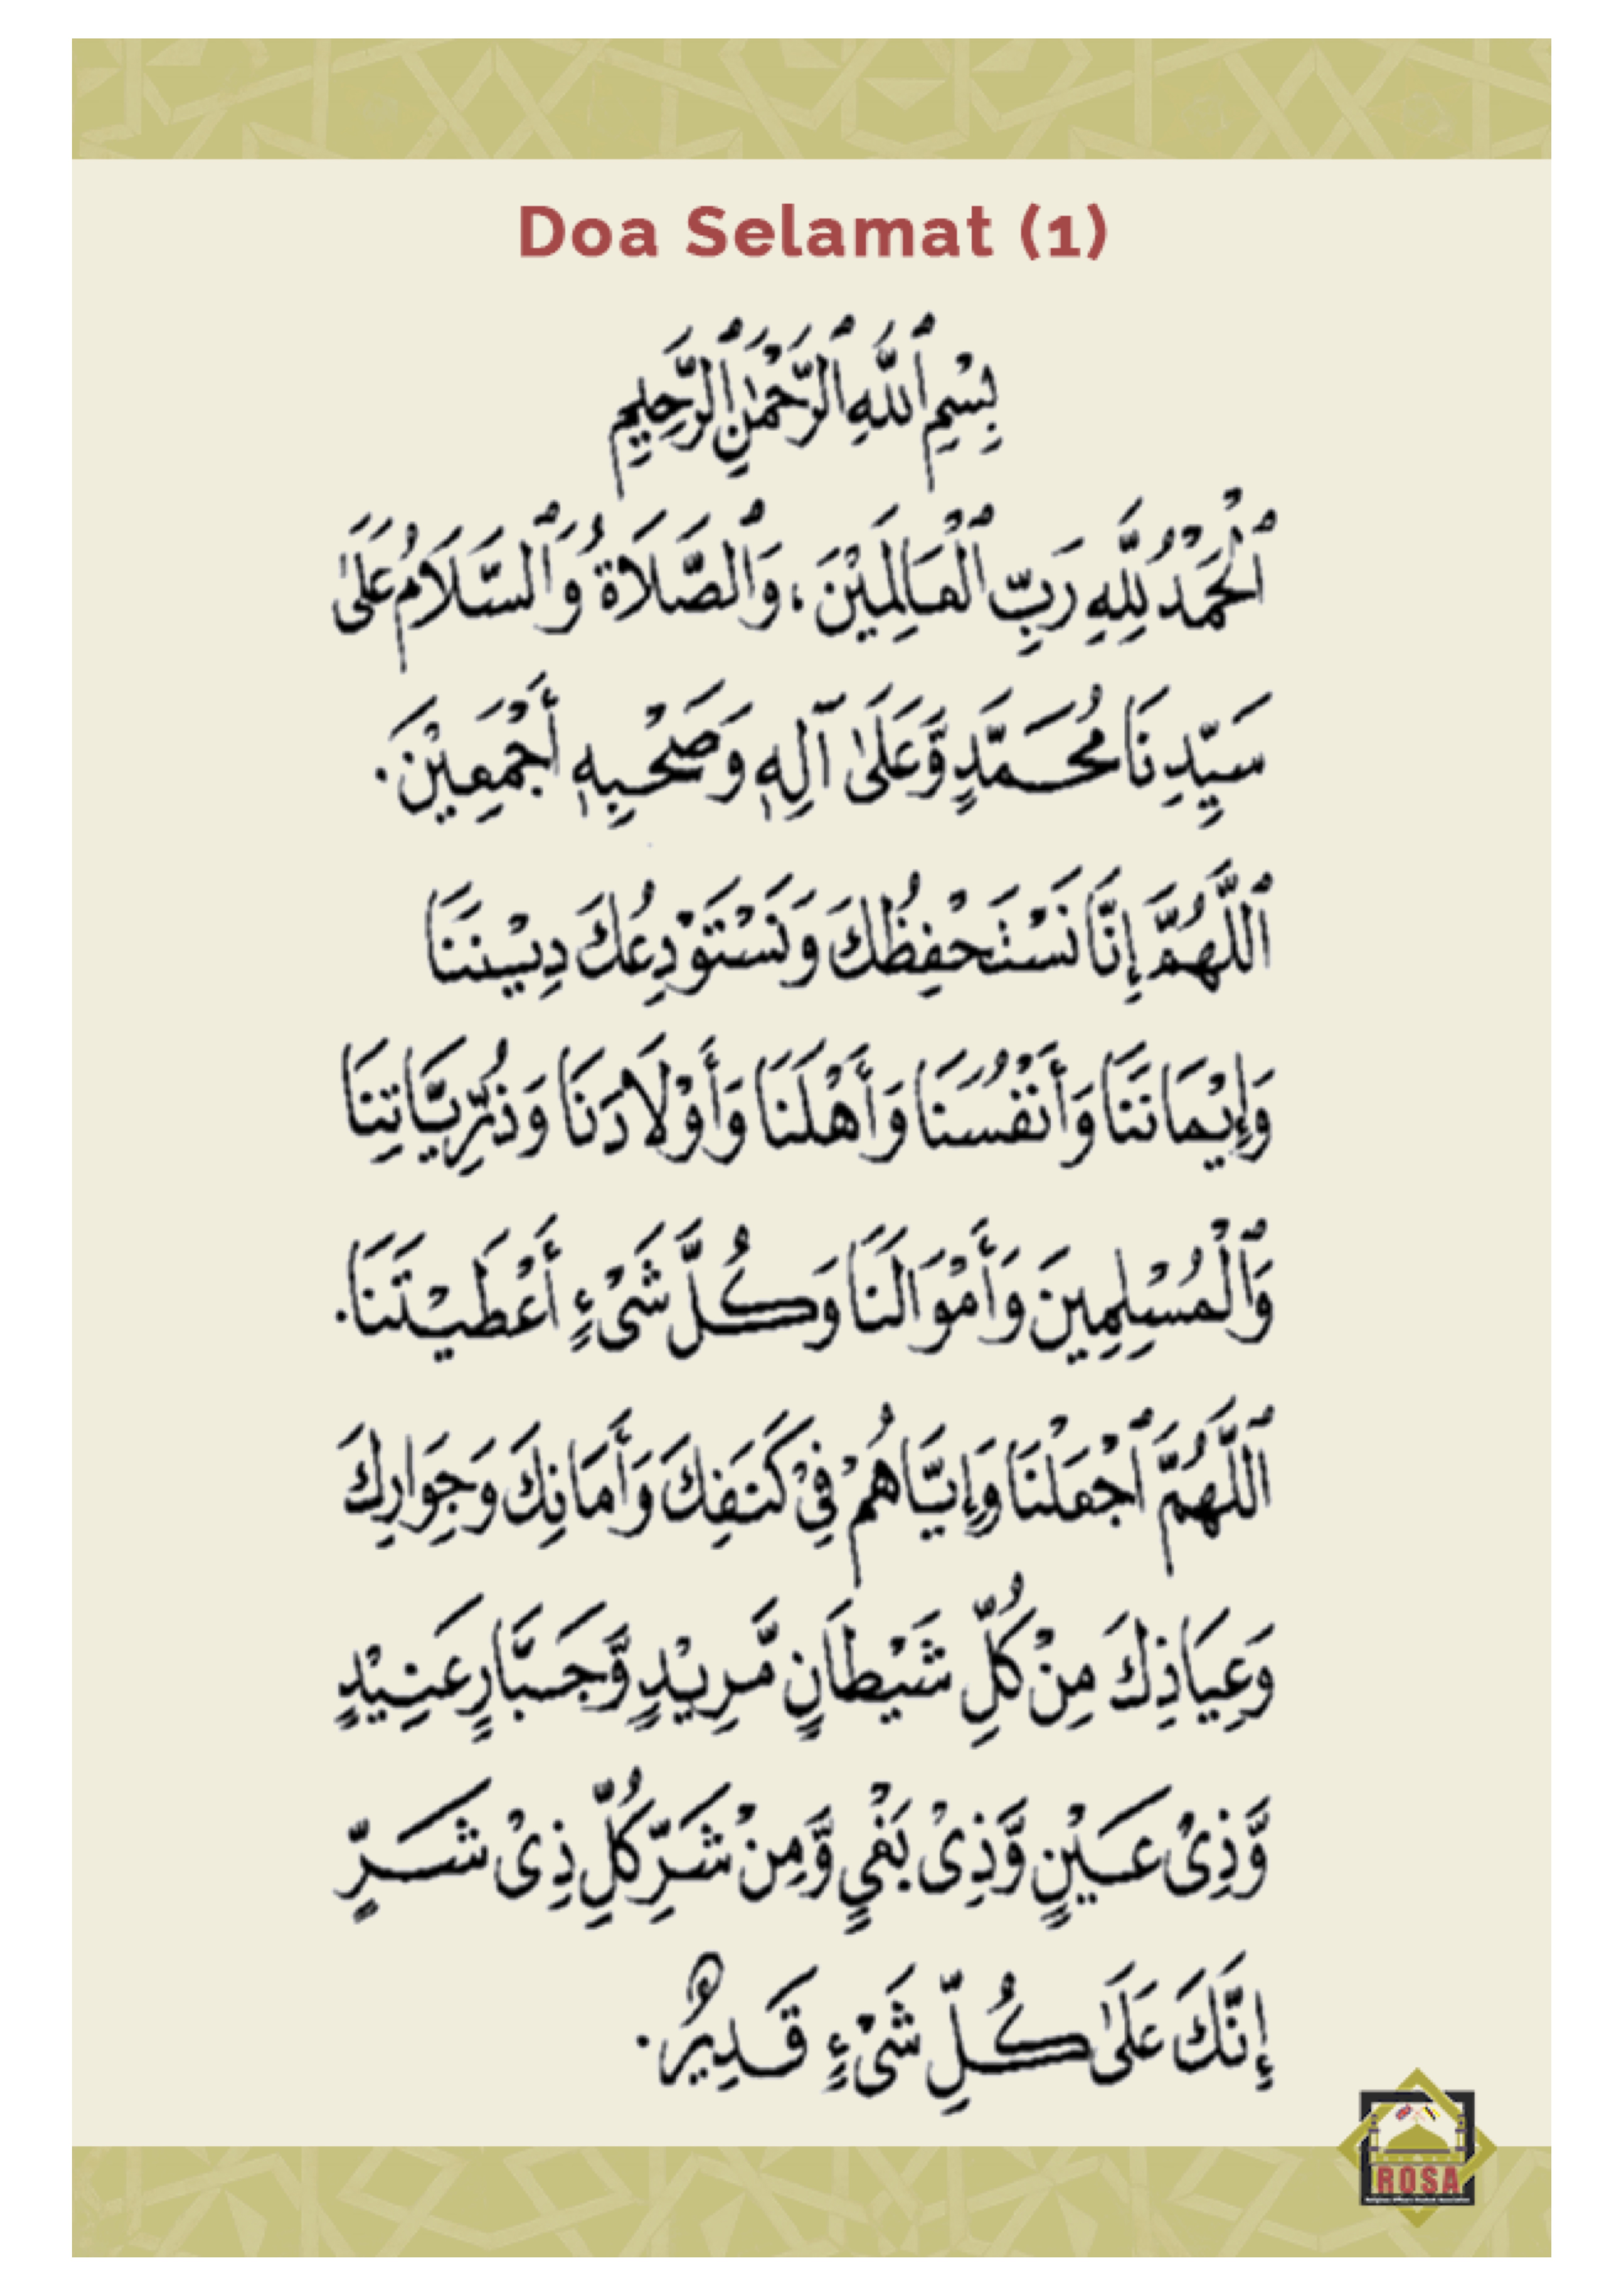 Doa Selamat (1)
بِسْمِ ٱللَّهِ ٱلرَّحْمَٰنِ ٱلرَّحِيمِ
ٱلْحَمْدُ لِلَّهِ رَبِّ ٱلْعَالَمِيْنَ، وَٱلصَّلَاةُ وَٱلسَّلَامُ عَلَىٰ
سَيِّدِنَا مُحَمَّدٍ وَّعَلَىٰ آلِهِۦ وَصَحْبِهِۦ أَجْمَعِيْنَ.
ٱللَّهُمَّ إِنَّا نَسْتَحْفِظُكَ وَنَسْتَوْدِعُكَ دِيْنَنَا
وَإِيْمَانَنَا وَأَنْفُسَنَا وَأَهْلَنَا وَأَوْلَادَنَا وَذُرِّيَّاتِنَا
وَٱلْمُسْلِمِينَ وَأَمْوَالَنَا وَكُلَّ شَىْءٍ أَعْطَيْتَنَا.
ٱللَّهُمَّ ٱجْعَلْنَا وَإِيَّاهُمْ فِيْ كَنَفِكَ وَأَمَانِكَ وَجِوَارِكَ
وَعِيَاذِكَ مِنْ كُلِّ شَيْطَانٍ مَّرِيْدٍ وَّجَبَّارٍ عَنِيْدٍ
وَّذِىْ عَيْنٍ وَّذِىْ بَغْيٍ وَّمِنْ شَرِّ كُلِّ ذِىْ شَرٍّ
إِنَّكَ عَلَىٰ كُلِّ شَىْءٍ قَدِيْرٌ.
ROSA